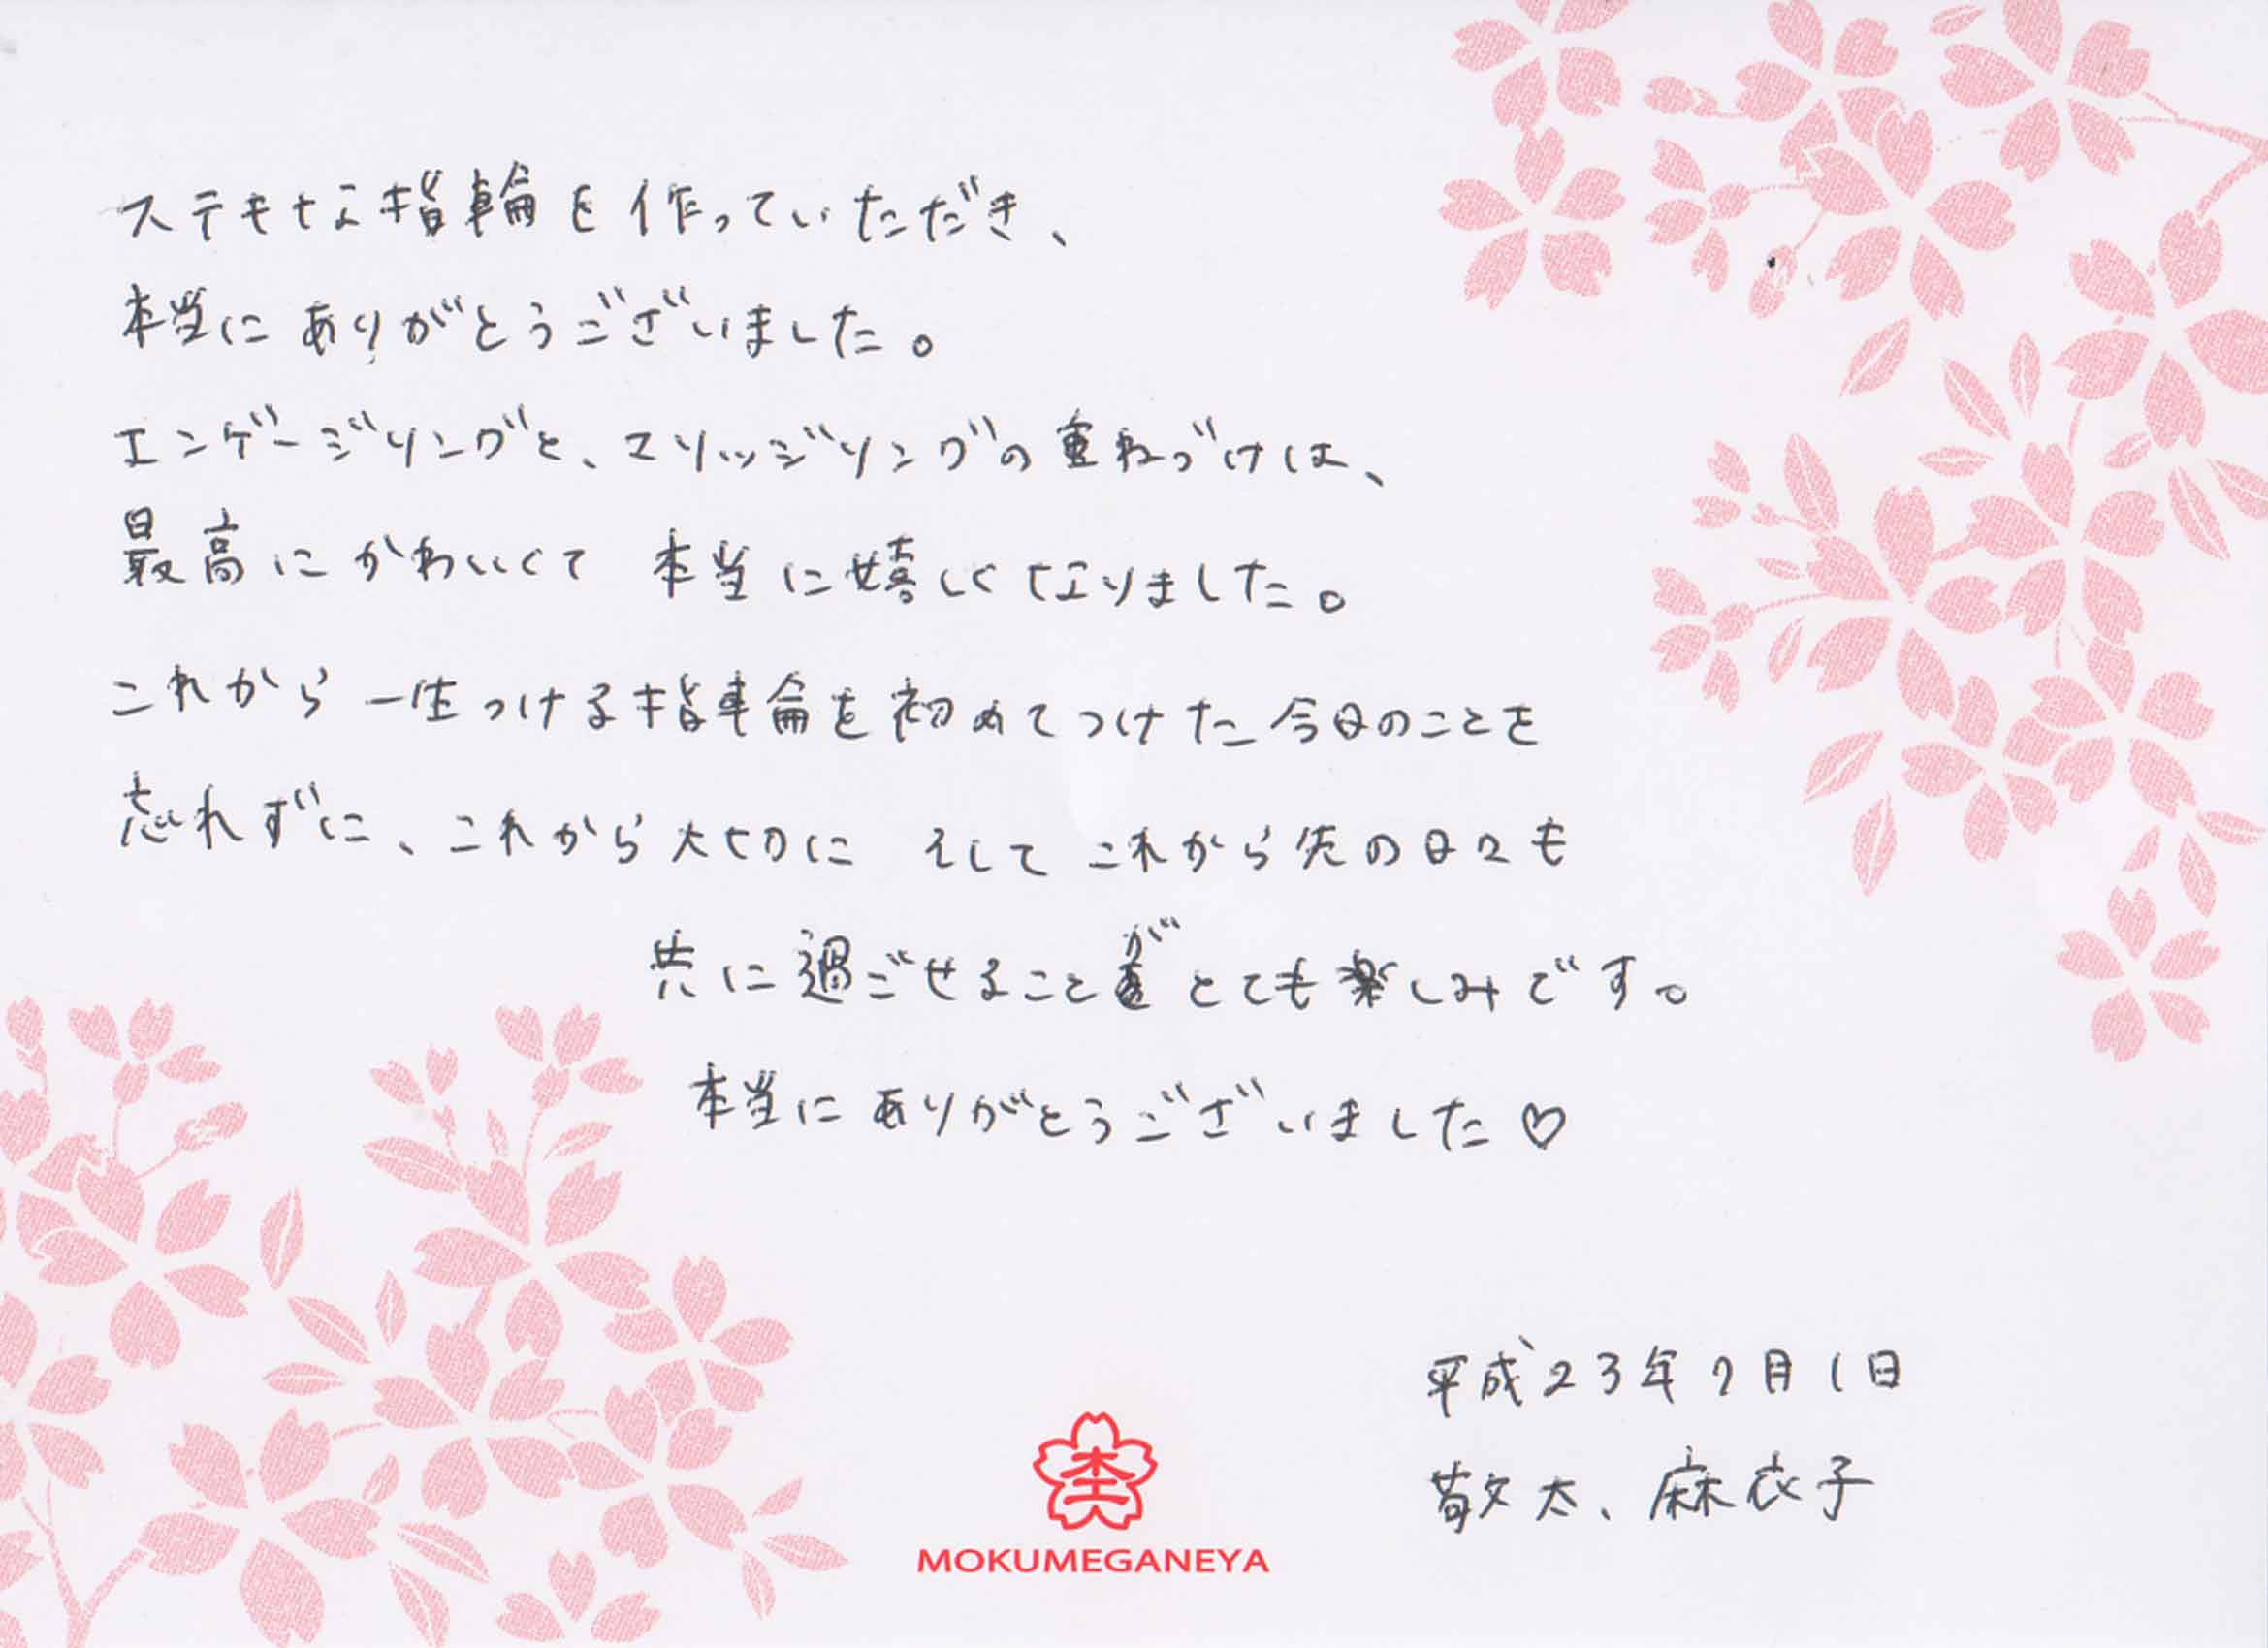 ステキな指輪を作っていただき、
本当にありがとうございました。
エンゲージリングと、マリッジリングの重ねづけは、
最高にかわいくて 本当に嬉しくなりました。
これから一生つける指輪を初めてつけた今日のことを
忘れずに、これから大切に そしてこれから先の日々も
共に過ごせることがとても楽しみです。
本当にありがとうございました♡
平成23年7月1日
敬太、麻衣子
杢
MOKUMEGANEYA